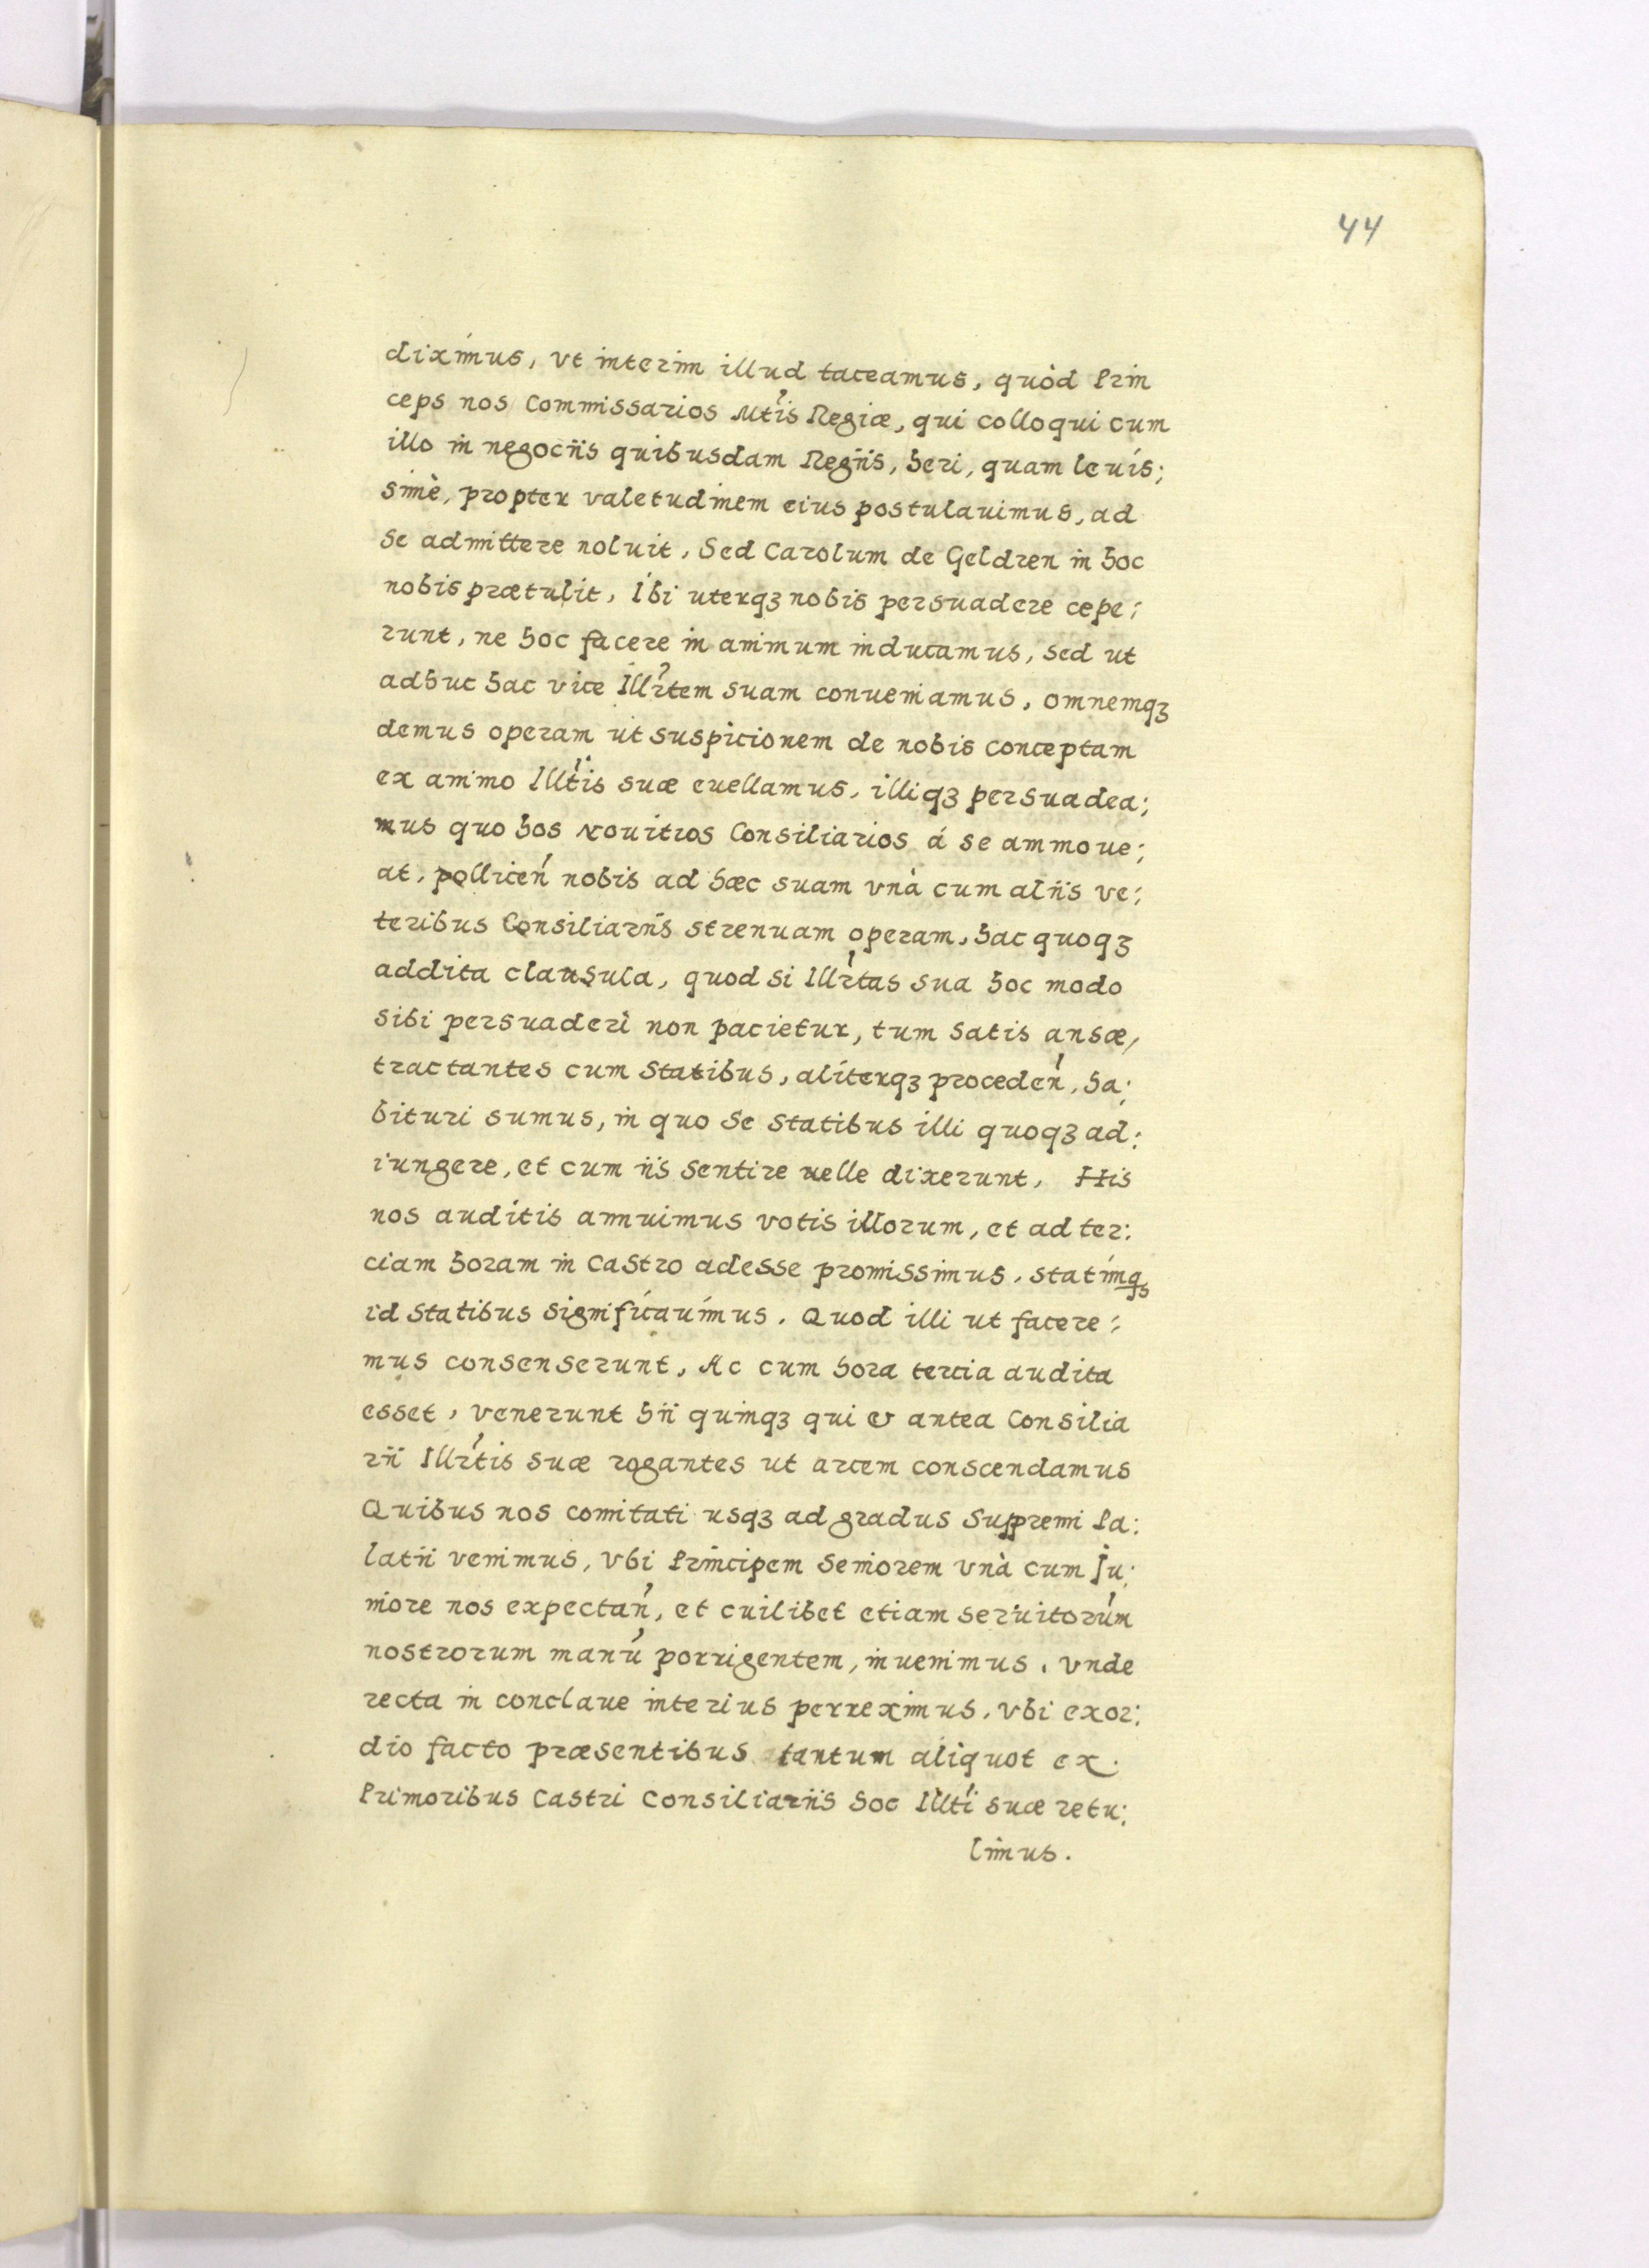 44
diximus, vt interim illud taceamus, quòd Prin
ceps nos Commissarios Mtis Regiæ, qui colloqui cum
illo in negocijs quibusdam Regijs, heri, quam leuis:
simè, propter valetudinem eius postulauimus, ad
se admittere noluit, Sed Carolum de Geldren in hoc
nobis prætulit, Ibi uterqꝫ nobis persuadere cepe:
runt, ne hoc facere in animum inducamus, sed ut
adhuc hac vice Illrtem suam conueniamus, omnemqꝫ
demus operam ut suspicionem de nobis conceptam
ex animo Illtis suæ euellamus, illiqꝫ persuadea:
mus quo hos nouitios Consiliarios á se ammoue:
at, polliceń nobis ad hæc suam vnà cum alijs ve:
teribus Consiliarijs strenuam operam, hac quoqꝫ
addita clausula, quod si Illrtas sua hoc modo
sibi persuaderi non pacietur, tum satis ansæ,
tractantes cum Statibus, aliterqꝫ procedeń, ha:
bituri sumus, in quo se statibus illi quoqꝫ ad:
iungere, et cum ijs sentire uelle dixerunt, His
nos auditis annuimus votis illorum, et ad ter:
ciam horam in Castro adesse promissimus, statimqꝫ
id statibus significauimus. Quod illi ut facere:
mus consenserunt, Ac cum hora tercia audita
esset, venerunt hij quinqꝫ qui & antea Consilia
rij Illrtis suæ rogantes ut arcem conscendamus
Quibus nos comitati usqꝫ ad gradus Suppremi Pa:
latij venimus, vbi Principem Seniorem vnà cum Ju:
niore nos expectań, et cuilibet etiam seruitorúm
nostrorum manú porrigentem, inuenimus, vnde
recta in conclaue interius perreximus, vbi exor:
dio facto præsentibus tantum aliquot ex
Primoribus Castri Consiliarijs hoc Illti suæ retu:
limus.